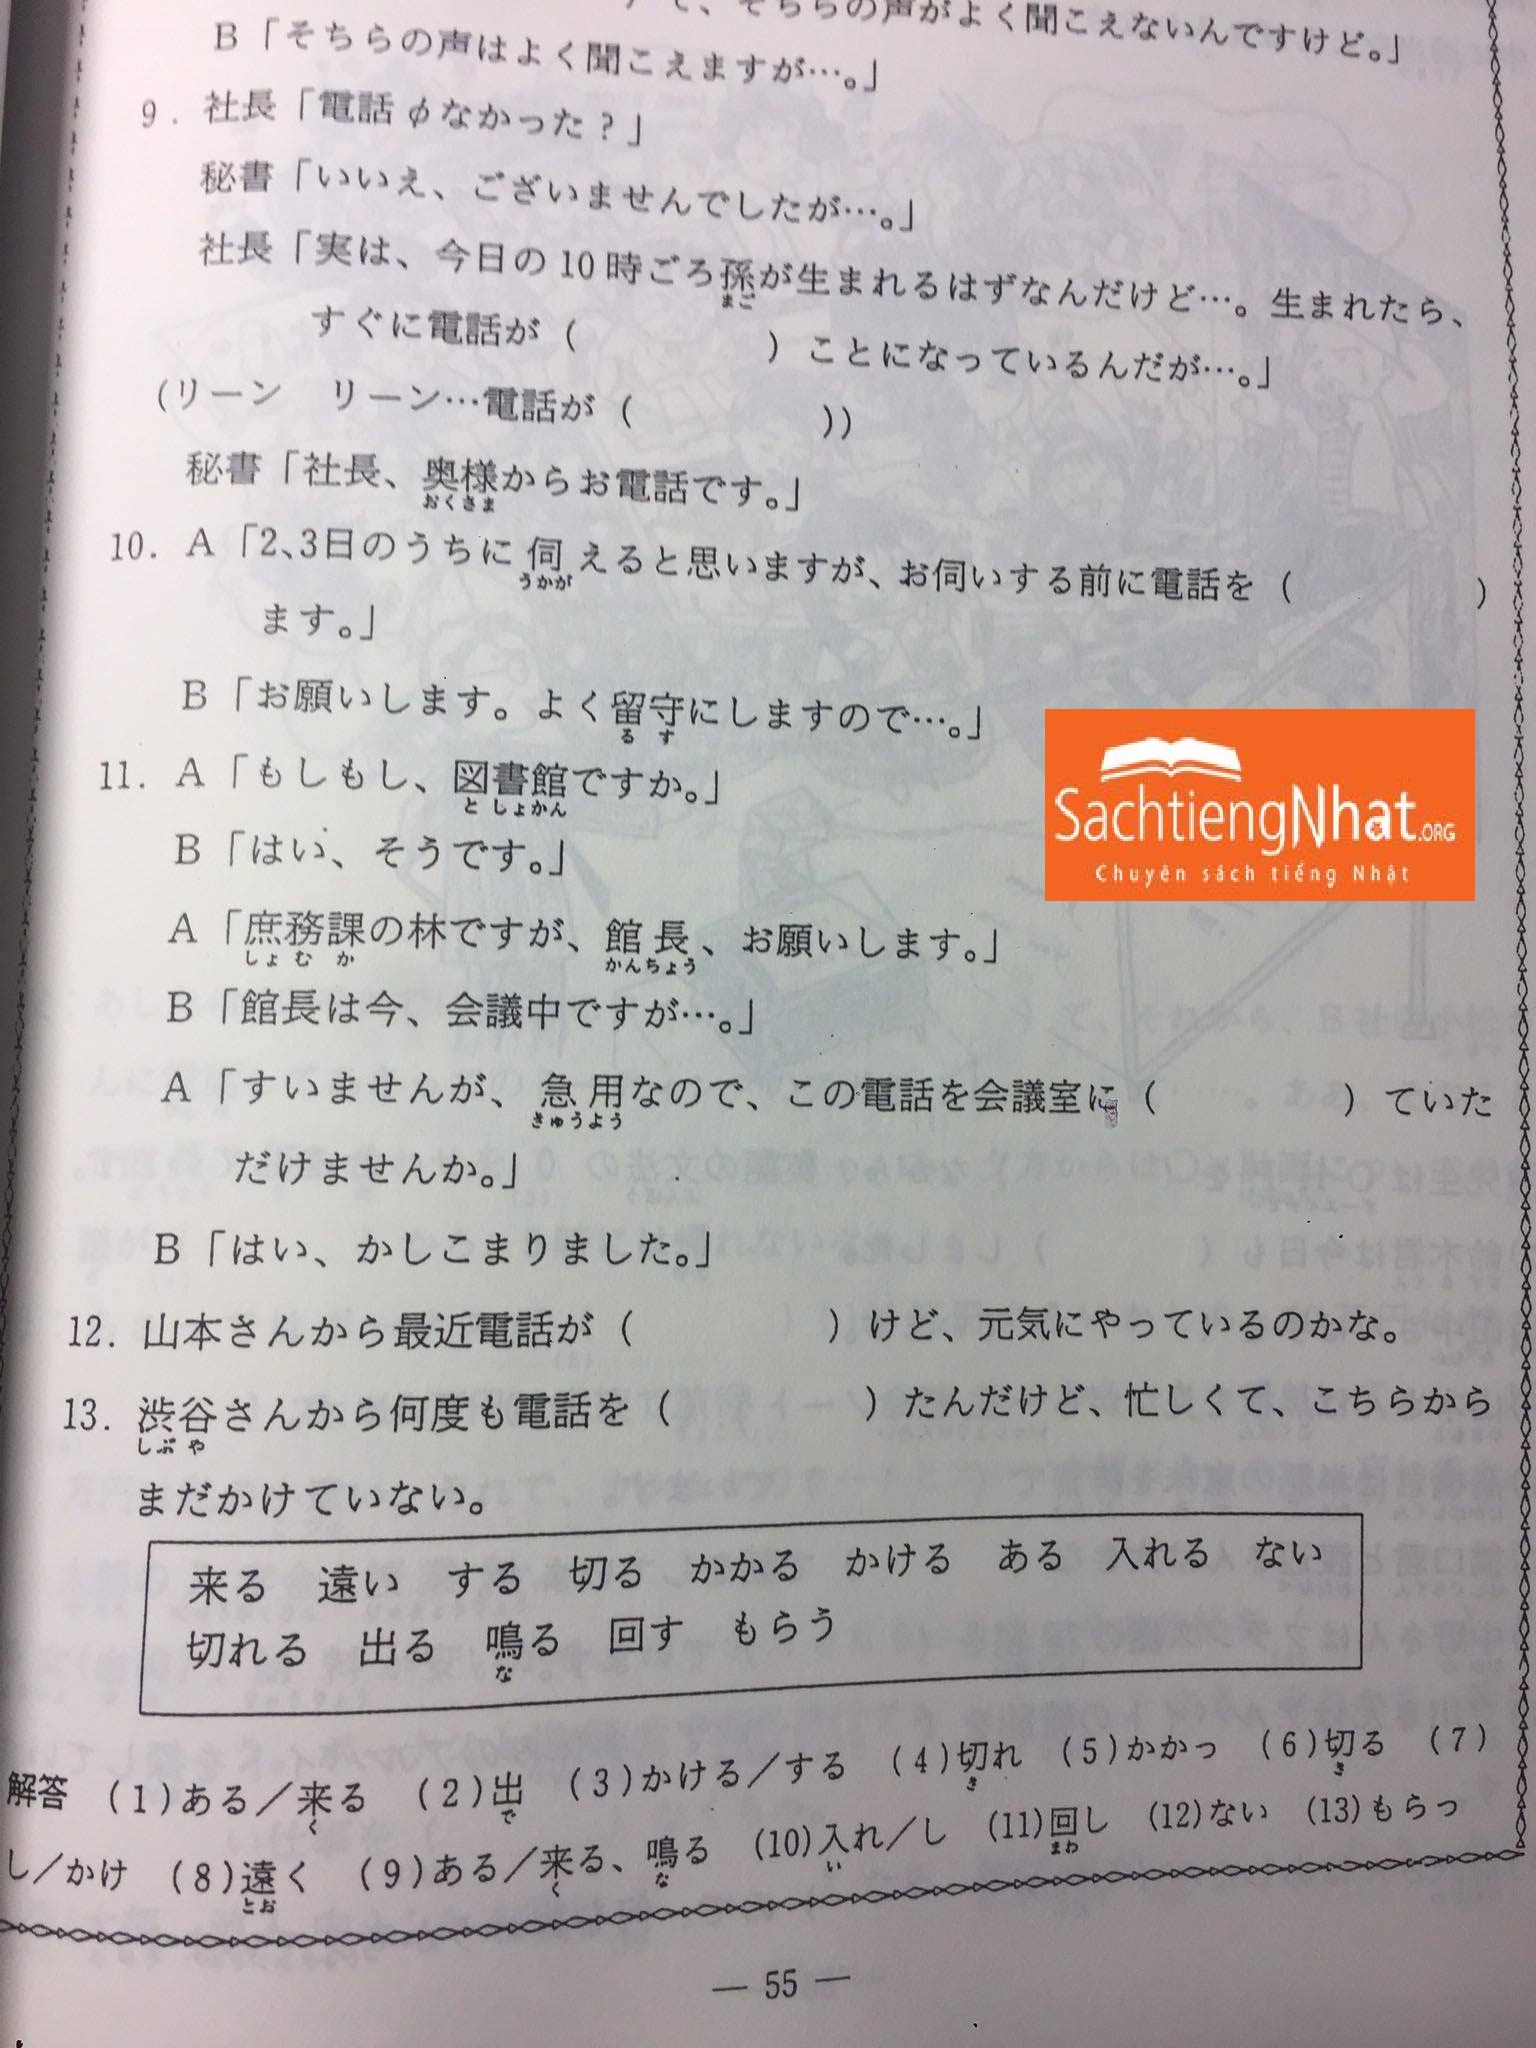 て、そちらの声がよく聞こえないんですけど。」
B「そちらの声はよく聞こえますが…。」
9. 社長「電話φなかった？」
秘書「いいえ、ございませんでしたが…。」
社長「実は、今日の10時ごろ孫が生まれるはずなんだけど…。生まれたら、
まご
すぐに電話が（　　　）ことになっているんだが…。」
（リーン　リーン…電話が（　　　））
秘書「社長、奥様からお電話です。」
おくさま
10. A「2、3日のうちに伺えると思いますが、お伺いする前に電話を（　　　）
うかが
ます。」
B「お願いします。よく留守にしますので…。」
る す
11. A「もしもし、図書館ですか。」
と しょかん
B「はい、そうです。」
A「庶務課の林ですが、館長、お願いします。」
しょ む か かんちょう
B「館長は今、会議中ですが…。」
A「すいませんが、急用なので、この電話を会議室に（　　　）ていた
きゅうよう
だけませんか。」
B「はい、かしこまりました。」
12. 山本さんから最近電話が（　　　）けど、元気にやっているのかな。
13. 渋谷さんから何度も電話を（　　　）たんだけど、忙しくて、こちらから
しぶ や
まだかけていない。
来る　遠い　する　切る　かかる　かける　ある　入れる　ない
切れる　出る　鳴る　回す　もらう
な
解答　(1)ある／来る　(2)出　(3)かける／する　(4)切れ　(5)かかっ　(6)切る　(7)
く で き き
し／かけ　(8)遠く　(9)ある／来る、鳴る　(10)入れ／し　(11)回し　(12)ない　(13)もらっ
とお く な い まわ
— 55 —
SachtiengNhat.ORG
Chuyên sách tiếng Nhật